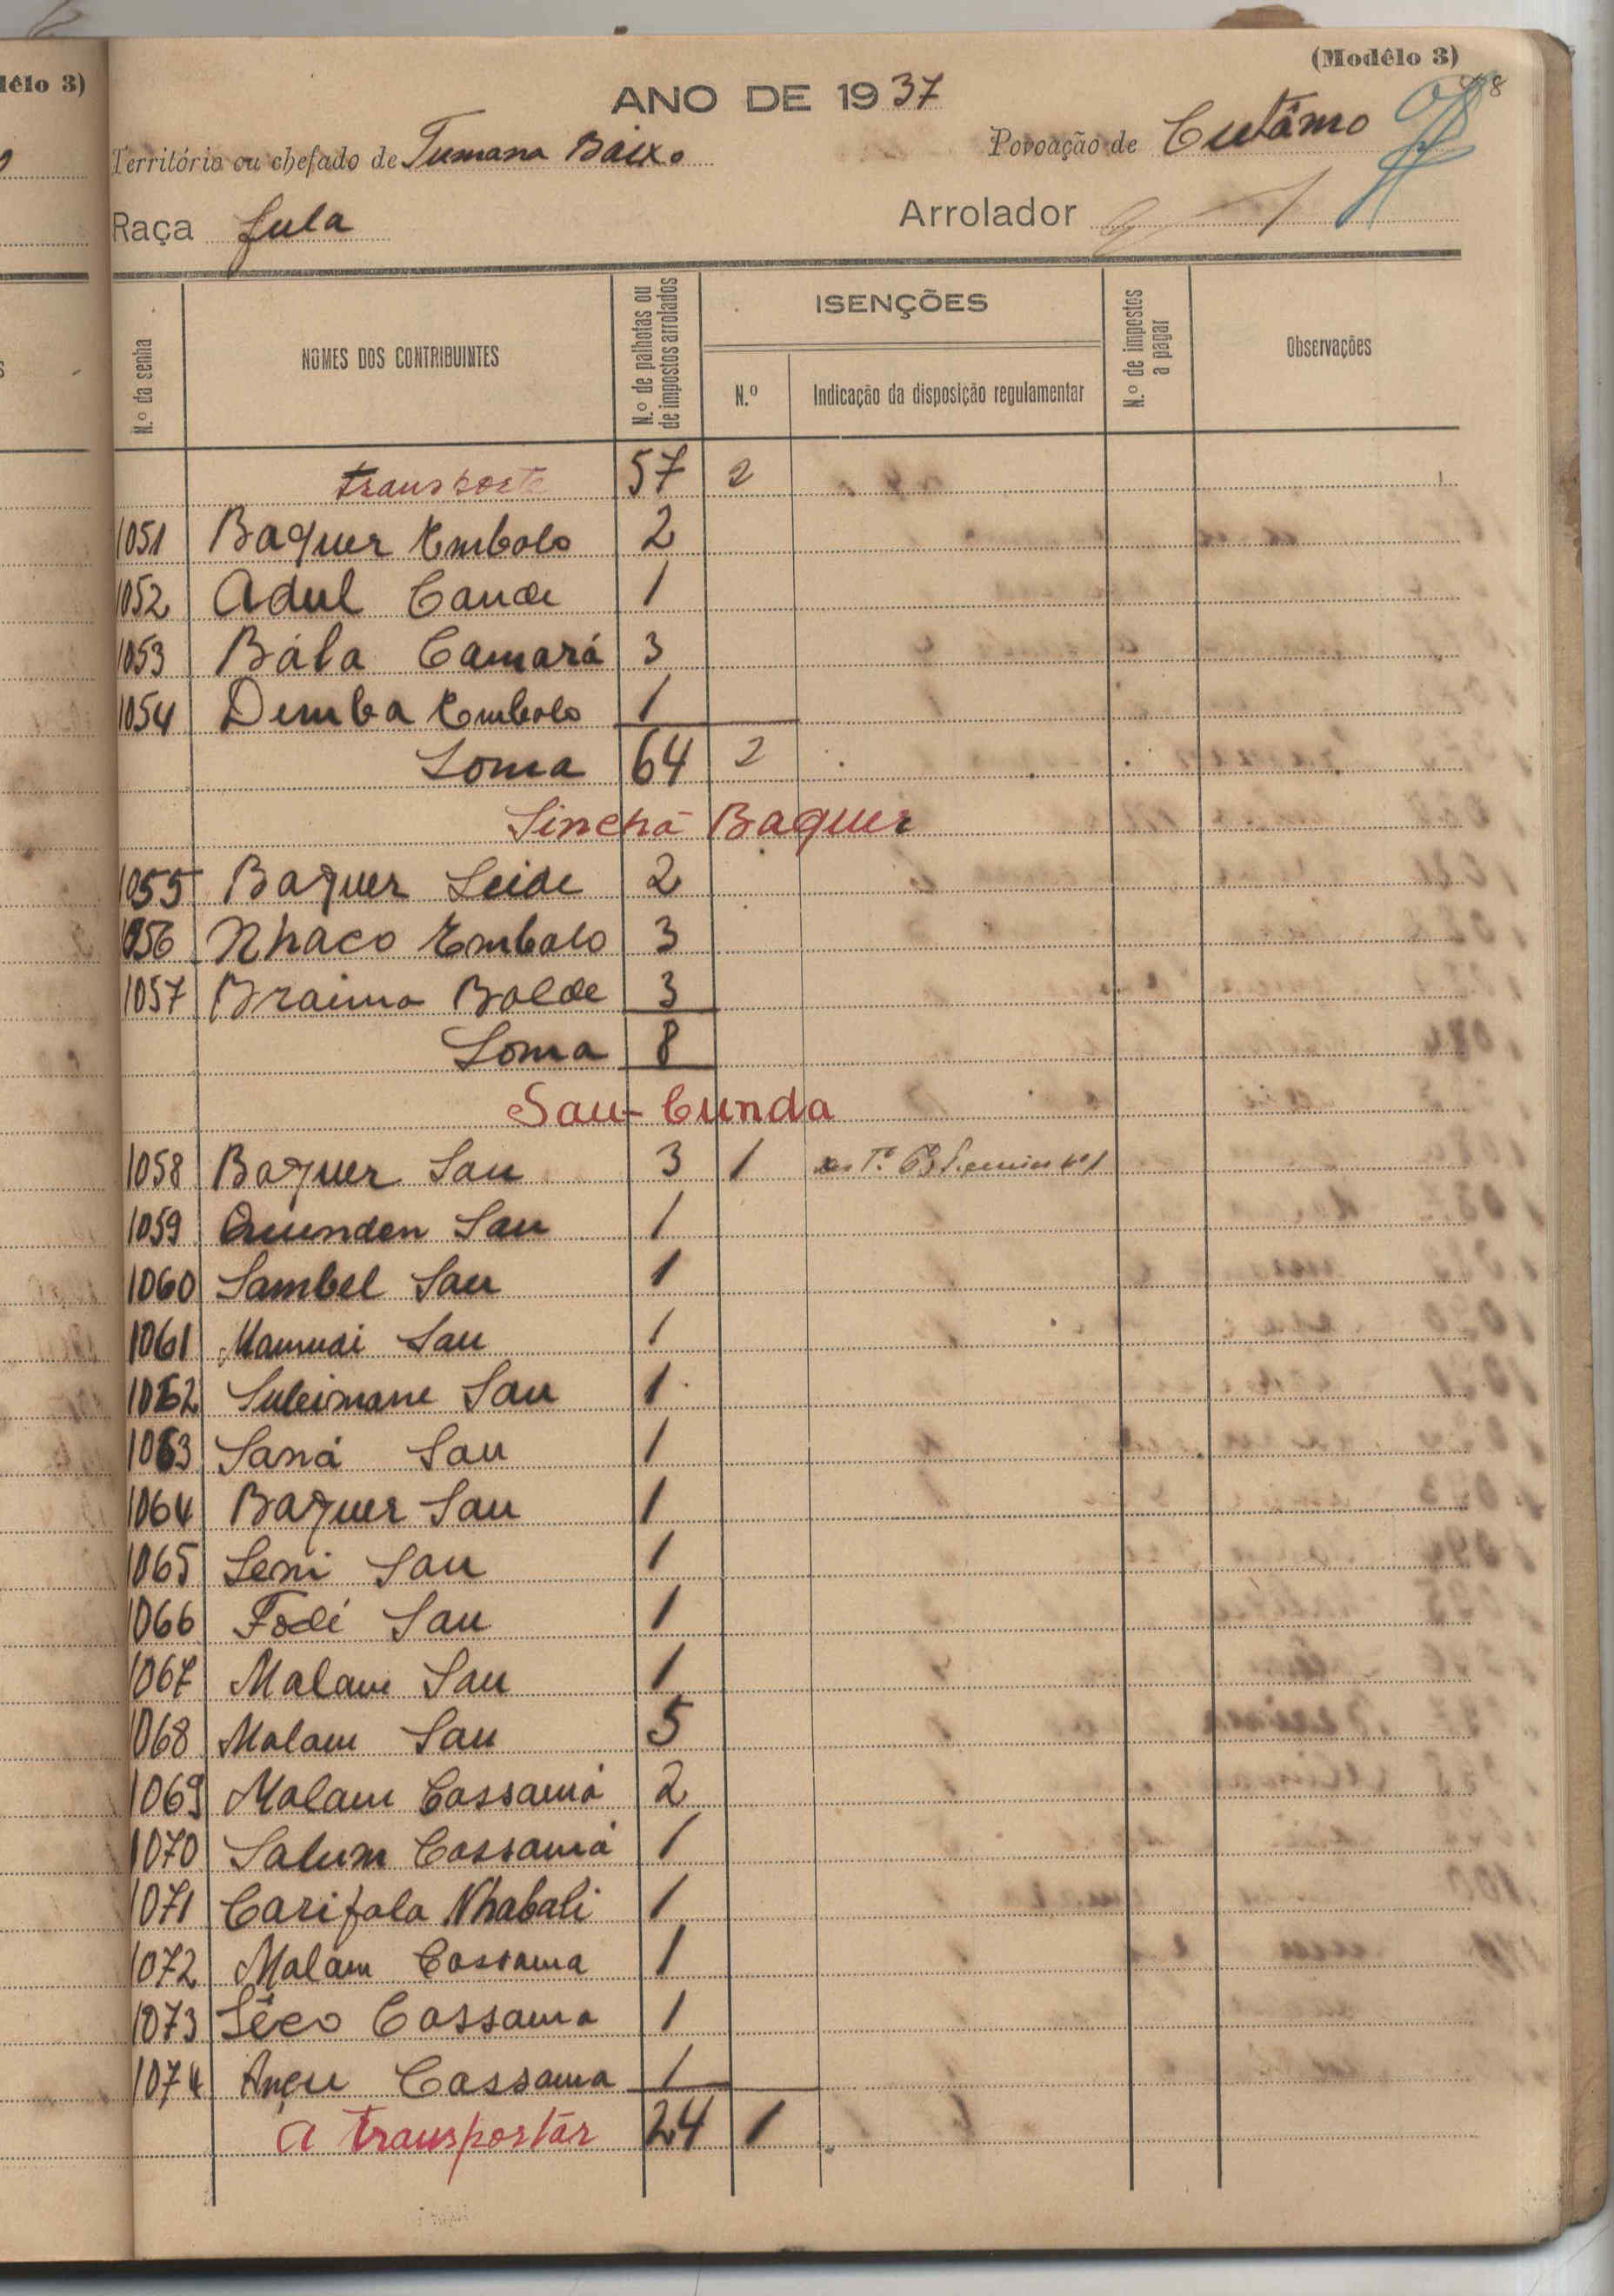 (Modêlo 3)
ANO DE 1937
Território ou chefado de Tumana Baixo
Povoação de Cutâmo
Raça fula
Arrolador
N.º da senha
NOMES DOS CONTRIBUINTES
N.º de palhotas ou de impostos arrolados
ISENÇÕES
N.º
Indicação da disposição regulamentar
N.º de impostos a pagar
Observações
transporte 57 2
1051 Baquer Embalo 2
1052 Adul Cande 1
1053 Bála Camará 3
1054 Demba Embalo 1
Soma 64 2
Sinchã Baquer
1055 Baquer Seide 2
1056 Nhaco Embalo 3
1057 Braima Balde 3
Soma 8
Sau-Cunda
1058 Baquer Sau 3 1
1059 Quunden Sau 1
1060 Sambel Sau 1
1061 Mamudi Sau 1
1062 Suleimane Sau 1
1063 Saná Sau 1
1064 Baquer Sau 1
1065 Seni Sau 1
1066 Fodé Sau 1
1067 Malam Sau 1
1068 Malam Sau 5
1069 Malam Cassamá 2
1070 Salum Cassamá 1
1071 Carifala Nhabali 1
1072 Malam Cassama 1
1073 Sêco Cassama 1
1074 Ançu Cassama 1
a transportar 24 1